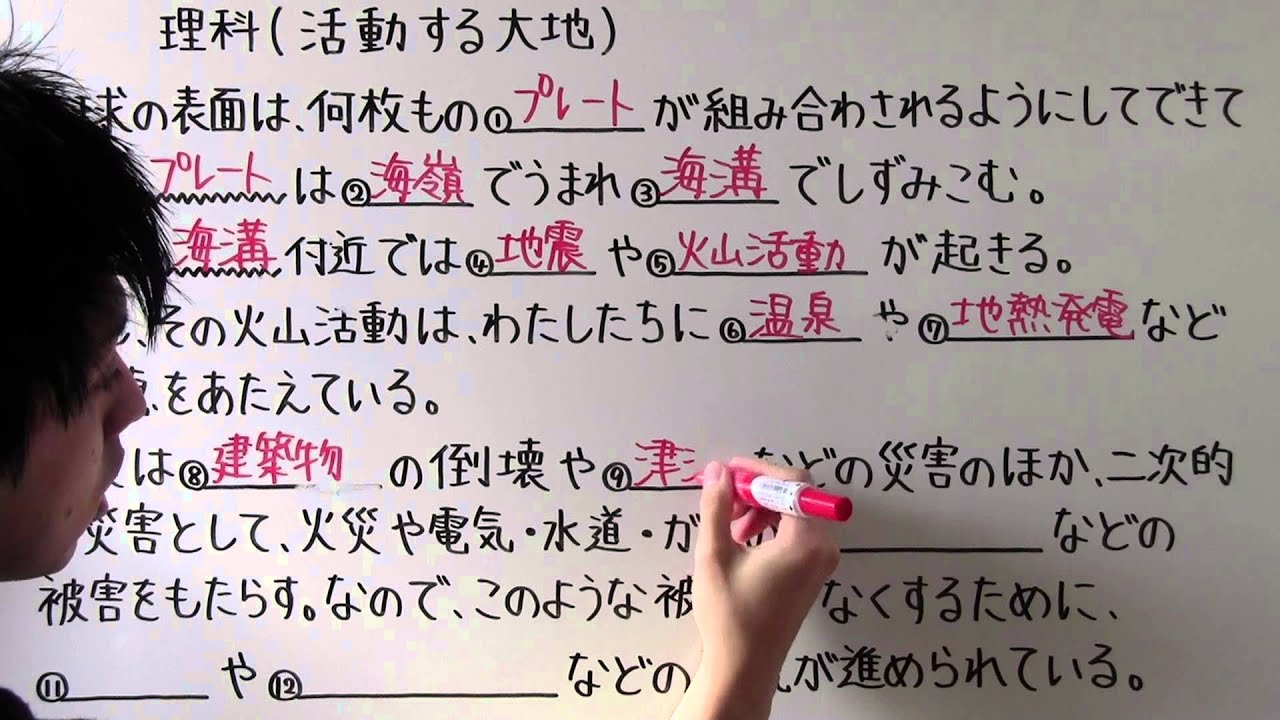 理科(活動する大地)
球の表面は、何枚もの①プレートが組み合わされるようにしてできて
プレートは②海嶺でうまれ③海溝でしずみこむ。
海溝付近では④地震や⑤火山活動が起きる。
その火山活動は、わたしたちに⑥温泉や⑦地熱発電など
をあたえている。
は⑧建築物の倒壊や⑨津 などの災害のほか、二次的
災害として、火災や電気・水道・ガ などの
被害をもたらす。なので、このような被 なくするために、
⑪ や⑫ などの が進められている。